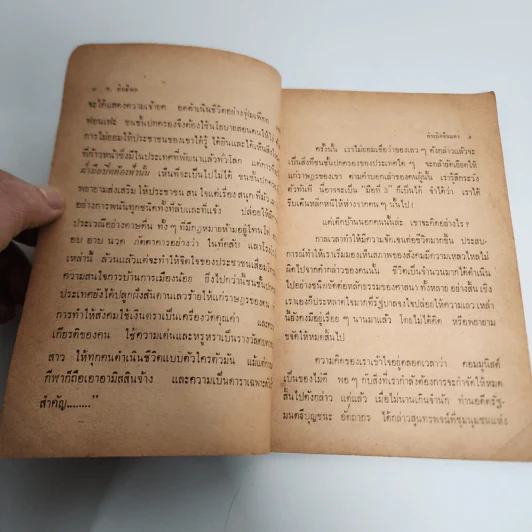 ๖ ช. ทินรัตน
จะได้แสดงความเจ้ายศ อดดำเนินชีวิตอย่างฟุ่มเฟือย
ฟอนเฟะ ชนชั้นปกครองจึงต้องใช้นโยบายสอนคนให้
การไม่ยอมให้ประชาชนของเขาได้รู้ ได้ยินและได้เห็นสิ่ง
ที่ก้าวหน้าซึ่งมีในประเทศที่พัฒนาแล้วทั่วโลก แต่การ
เห็นที่จะเป็นไปไม่ได้ ชนชั้นปก
พยายามส่งเสริม ให้ประชาชน สนใจแต่เรื่อง สนุก ที่มัว
อย่างการพนันทุกชนิดทั้งที่ลับและที่แจ้ง ปล่อยให้มี
ประเวณีอย่างดาษดื่น ทั้ง ๆ ที่มีกฎหมายห้ามอยู่โทนโท่
อบ อาบ นวด ภัตตาคารอย่างว่า ไนท์คลับ และโรง
เหล่านี้ ล้วนแล้วแต่จะทำให้จิตใจของประชาชนเสื่อมโทรม
ความสนใจการบ้านการเมืองน้อย ยิ่งไปกว่านี้ชนชั้น
ประเทศยังได้ปลูกฝังสันดานเลวร้ายให้แก่ราษฎรของตน
การทำให้สังคมใช้เงินตราเป็นเครื่องวัดคุณค่า และ
เกียรติของคน ใช้ความเด่นและหรูหราเป็นรางวัล
สาว ให้ทุกคนดำเนินชีวิตแบบตัวใครตัวมัน แม้แต่
กีฬาก็ถือเอาอามิสสินจ้าง และความเป็นดาราเฉพาะตัว
สำคัญ........”
ครั้งนั้น เราไม่ยอมเชื่อว่าของเลว ๆ ดังกล่าวแล้วจะ
เป็นสิ่งที่ชนชั้นปกครองของประเทศใด ๆ จะกล้ายัดเยียดให้
แก่ราษฎรของเขา ตามคำบอกเล่าของคนผู้นั้น เรารู้สึกระวัง
ตัวทันที นี่อาจจะเป็น “มือที่ 3” ก็เป็นได้ จำได้ว่า เราได้
รีบเดินหลีกหนีให้ห่างจากคน ๆ นั้นไป !
แต่เด็กบ้านนอกคนนั้นล่ะ เขาจะคิดอย่างไร ?
กาลเวลาทำให้มีความจัดเจนต่อชีวิตมากขึ้น ประสบ-
การณ์ทำให้เราเริ่มมองเห็นสภาพของสังคมมีความเหลวไหลไม่
ผิดไปจากคำกล่าวของคนนั้น ชีวิตเป็นจำนวนมากได้ดำเนิน
ไปอย่างชนิดขัดต่อหลักธรรมของศาสนา ทั้งหลาย อย่างสิ้นเชิง
เราเองก็ประหลาดใจมากที่รัฐบาลจงใจปล่อยให้ความเลวเหล่า
นี้ยังคงมีอยู่เรื่อย ๆ นานมาแล้ว โดยไม่ได้คิด หรือพยายาม
ขจัดให้หมดสิ้นไป
ความคิดของเราเข้าใจอยู่ตลอดเวลาว่า คอมมูนิสต์
เป็นของไม่ดี พอ ๆ กับสิ่งที่เรากำลังต้องการจะกำจัดให้หมด
สิ้นไปดังกล่าว แต่แล้ว เมื่อไม่นานเกินจำนัก ท่านอดีตรัฐ-
มนตรีบุญชนะ อัตถากร ได้กล่าวสุนทรพจน์ที่ชุมนุมชนแห่ง